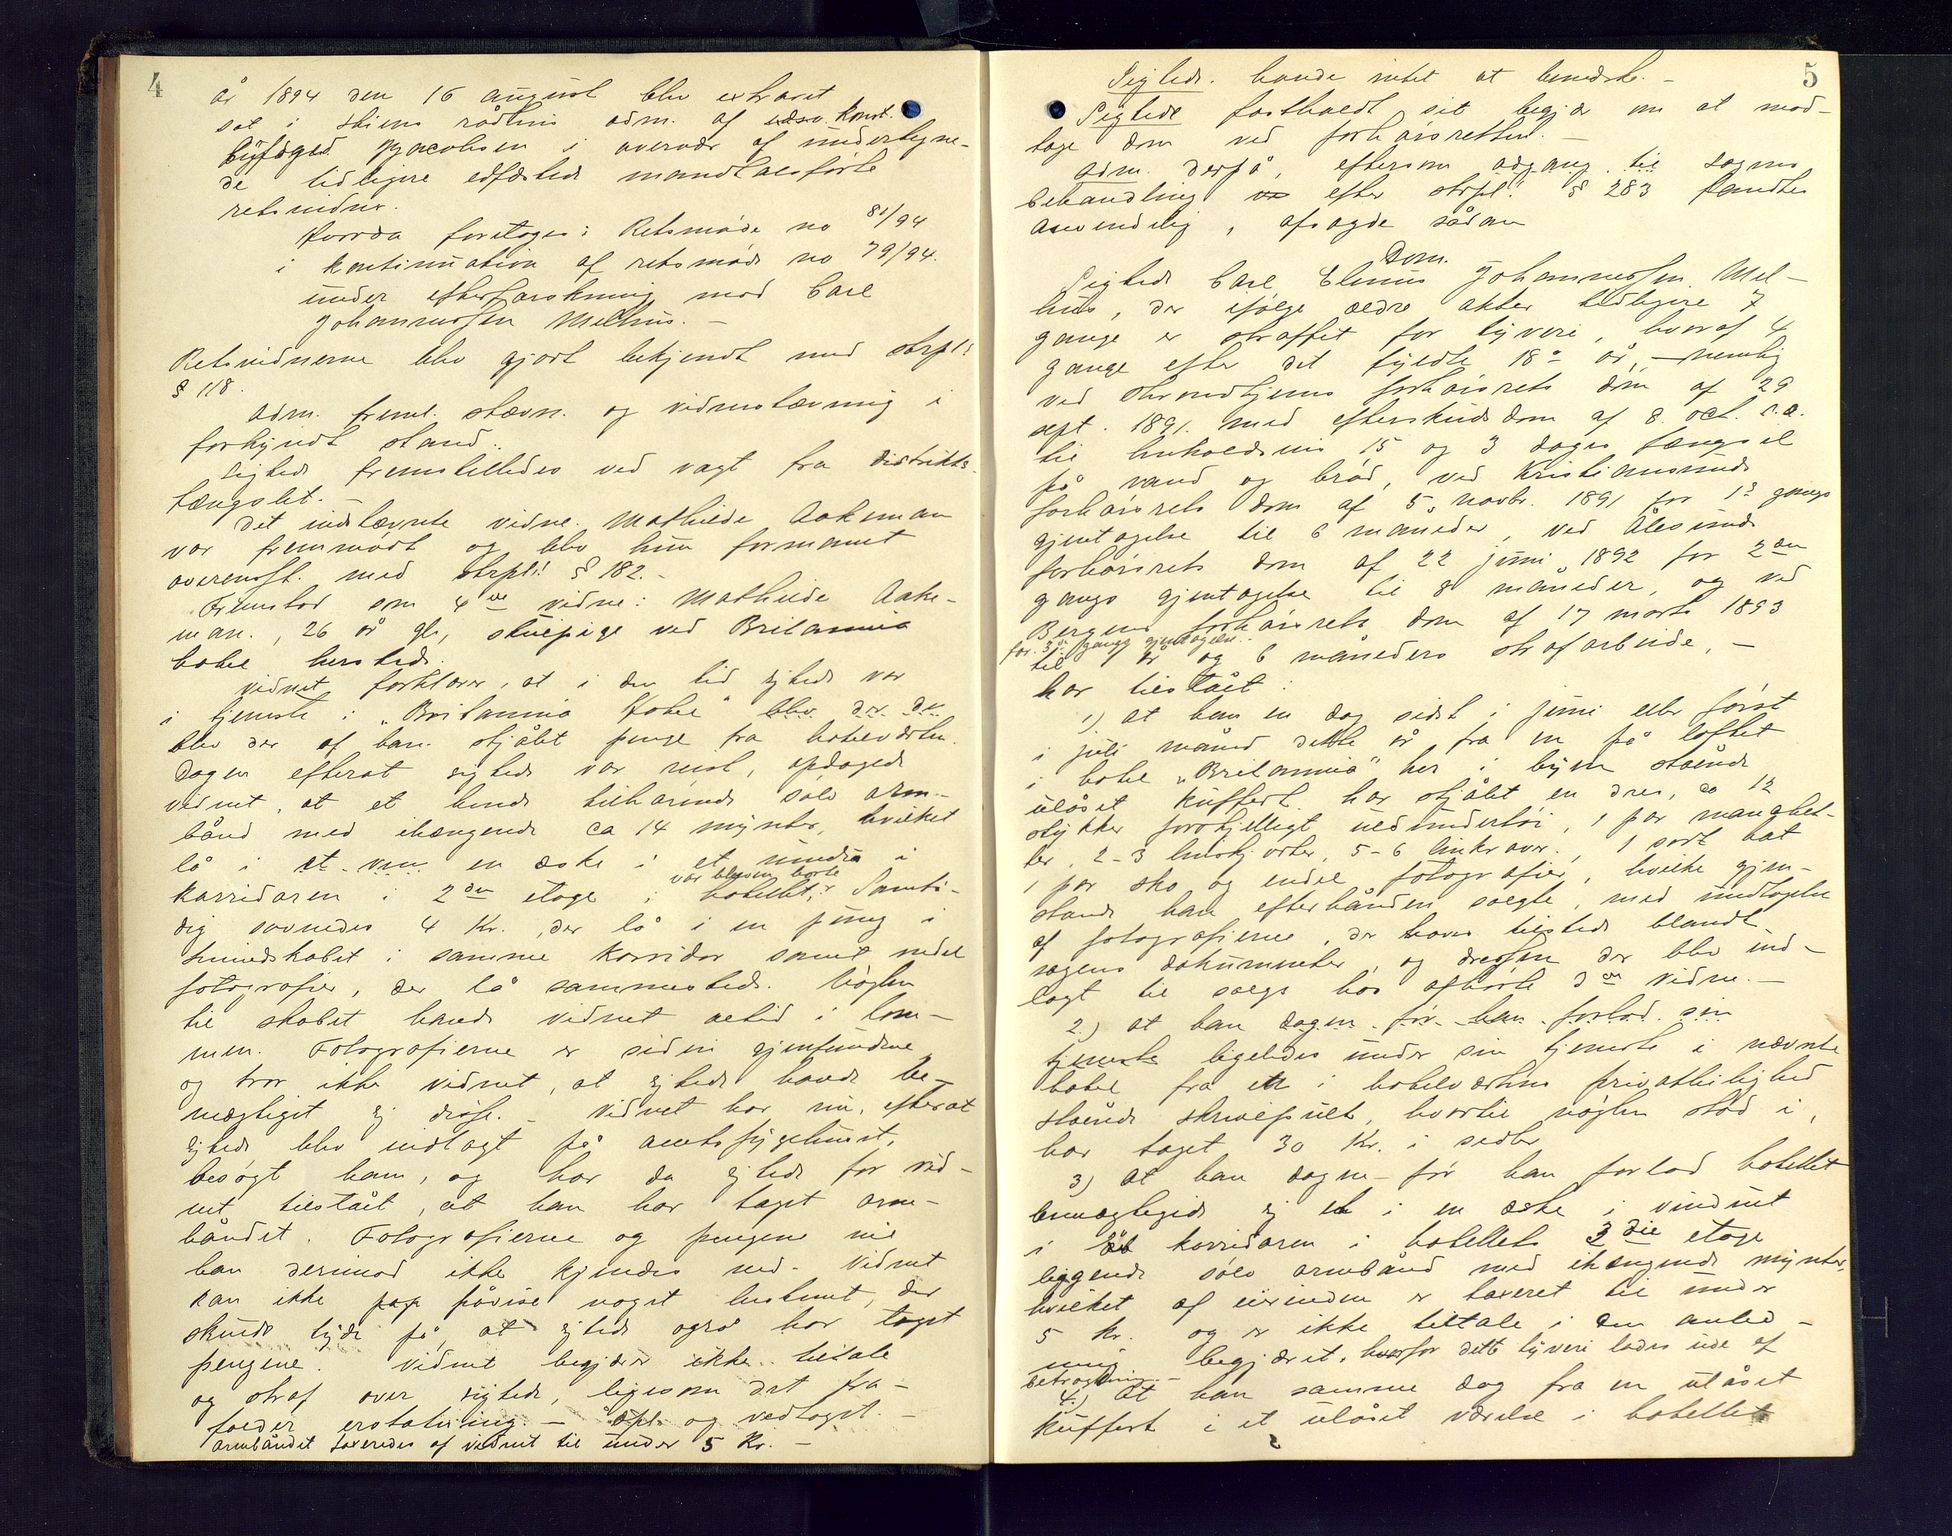 4
år 1894 den 16 august blev extraret
sat i Skiens rådhus adm. af const.
byfoged Jacobsen i overvær af undertegne-
de tidligere edfæstede mandtalsførte
retsvidner.
Hvorda foretoges: Retsmøde no 81/94
i kontinuation af retsmøde no 79/94.
under efterforskning mod Carl
Johannessen Melhus. -
Retsvidnerne blev gjort bekjendt med strpl!
§ 118.
Adm. freml. stævn. og vidnestævning i
forkyndt stand.
Sigtede fremstilledes ved vagt fra distrikts-
fængslet.
Det indstævnte vidne Mathilde Aakeman
var fremmødt og blev hun formanet
overensst. med strpl! § 182. -
Fremstod som 4de vidne: Mathilde Aake-
man., 26 år gl, stuepige ved Britannia
hotel hersteds.
Vidnet forklarer, at i den tid sigtede var
i tjeneste i "Britannia Hotel" blev der de
blev der af ham stjålet penge fra hotelværten.
Dagen efterat sigtede var reist, opdagede
vidnet, at et hende tilhørende sølv arm-
bånd med ihængende ca 14 mynter, hvilket
lå i et en æske i et vindu i
korridoren i 2den etage i hotellet, var bleven borte. Samti-
dig savnedes 4 Kr., der lå i en pung i
linnedskabet i samme korridor samt endel
fotografier, der lå sammesteds. Nøglen
til skabet havde vidnet altid i lom-
men. Fotografierne er siden gjenfundne
og tror ikke vidnet, at sigtede havde be-
mægtiget sig disse. - Vidnet har nu, efterat
sigtede blev indlagt på amtssygehuset,
besøgt ham, og har da sigtede for vid-
net tilstået, at han har taget arm-
båndet. Fotografierne og pengene vil
han derimod ikke kjendes ved. Vidnet
kan ikke påvise noget bestemt, der
skulde tyde på, at sigtede også har taget
pengene. Vidnet begjærer ikke tiltale
og straf over sigtede, ligesom det fra-
falder erstatning. - Opl. og vedtaget -
Armbåndet taxeredes af vidnet til under 5 Kr. -
5
Sigtede havde intet at bemærke. -
Sigtede fastholdt sit begjær om at mod-
tage dom ved forhørsretten. -
Adm. derpå, eftersom adgang til sagens
behandling efter strpl! § 283 fandtes
anvendelig, afsagde sådan
Dom.
Sigtede Carl Elenius Johannessen Mel-
hus, der ifølge ældre akter tidligere 7
gange er straffet for tyveri, hvoraf 4
gange efter det fyldte 18de år, - nemlig
ved Throndhjems forhørsrets dom af 29
sept. 1891 med efterskudsdom af 8 oct. s.a.
til henholdsvis 15 og 3 dages fængsel
på vand og brød, ved Kristiansunds
forhørsrets dom af 5 novbr. 1891 for 1ste gangs
gjentagelse til 6 måneder, ved Ålesunds
forhørsrets dom af 22 juni 1892 for 2den
gangs gjentagelse til 8 måneder, og ved
Bergens forhørsrets dom af 17 marts 1893
for 3die gangs gjentagelse
til 1 år og 6 måneders strafarbeide, -
har tilstået:
1) at han en dag sidst i juni eller først
i juli måned dette år fra en på loftet
i hotel "Britannia" her i byen stående
ulåset kuffert har stjålet en dres, ca 12
stykker forskjelligt uldundertøi, 1 par manchet-
ter, 2-3 linskjorter, 5-6 linkraver, 1 sort hat
1 par sko og endel fotografier, hvilke gjen-
stande han efterhånden solgte, med undtagelse
af fotografierne, der haves tilstede blandt
sagens dokumenter, og dressen der blev ind-
lagt til salgs hos afhørte 3die vidne. -
2) at han dagen før han forlod sin
tjeneste ligeledes under sin tjeneste i nævnte
hotel fra en i hotelværtens privatleilighed
stående skrivepult, hvortil nøglen stod i,
har taget 30 Kr. i sedler
3) at han dagen før han forlod hotellet
bemægtigede sig et i en æske i vinduet
i korridoren i hotellets 3die etage
liggende sølv armbånd med ihængende mynter,
hvilket af eierinden er taxeret til under
5 kr. og er ikke tiltale i den anled-
ning begjæret, hvorfor dette tyveri lades ude af
betragtning. -
4) at han samme dag fra en ulåset
kuffert i et ulåset værelse i hotellet